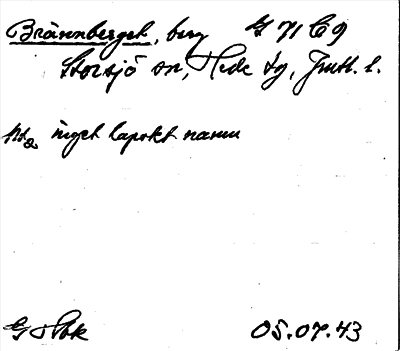 Brännberget, berg G 71 C9
Storsjö sn, Hede tg, Jmtl. l.
inget lapskt namn
05.07.43